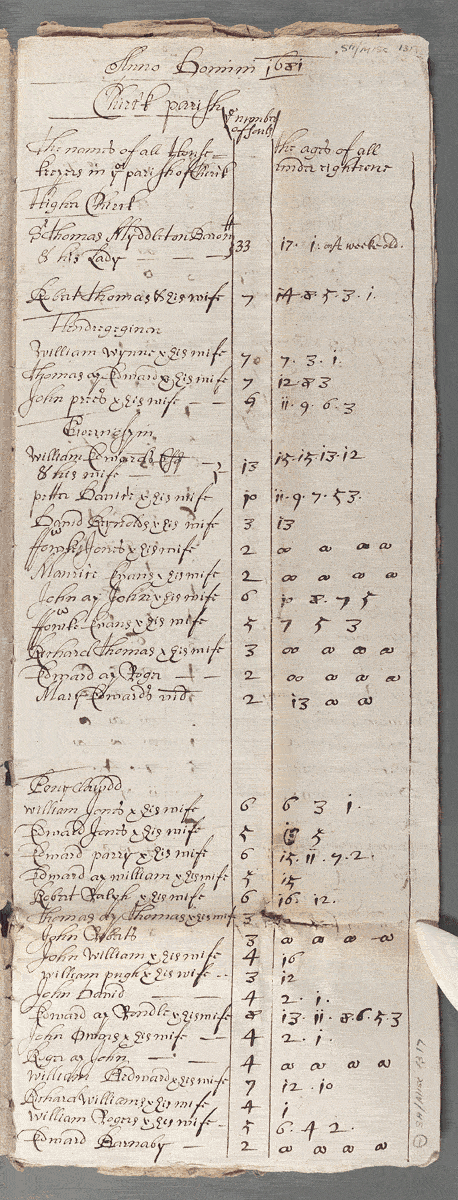 Anno Domini 1681
Chirk parish
ye number
of soules
The names of all House-
keepers in ye parish of Chirk
The ages of all
under eighteene
Higher Chirk
Sr Thomas Myddleton Baront
& his Lady 33 17. 1. weeke old.
Robert Thomas & his wife 7 14. 8. 5. 3. 1.
William Wynne x his wife 7 7. 3. 1.
Thomas ap Edward x his wife 7 12. 8 3
John prees x his wife 6 11. 9. 6. 3
William Edwards Esq
& his wife 13 15. 15. 13. 12
petter Davies x his wife 10 11. 9. 7. 5 3.
David Reynolds x his wife 3 13
ffowke Jones x his wife 2 o o o o
Maurice Evans x his wife 2 o o o o
John ap John x his wife 6 10 8. 7 5
ffowke Evans x his wife 5 7 5 3
Richard Thomas x his wife 3 o o o o
Edward ap Roger 2 o o o o
Mary Edwards vid 2 13 o o
William Jones x his wife 6 6 3 1.
Edward Jones x his wife 5 5
Edward parry x his wife 6 15. 11. 7. 2.
Edward ap William x his wife 5 15
Robert Ralph x his wife 6 16. 12.
Thomas ap Thomas x his wife 3
John Robets 3 o o o o
John William x his wife 4 16
William pugh x his wife 3 12
John David 4 2. 1.
Edward ap Rondle x his wife 8 13. 11. 8. 6. 5. 3
John Owens x his wife 4 2. 1.
Roger ap John 4 o o o o
William Bedward x his wife 7 12. 10
Richard Williams x his wife 4 1
William Rogers x his wife 5 6. 4 2.
Edward Barnaby 2 o o o o